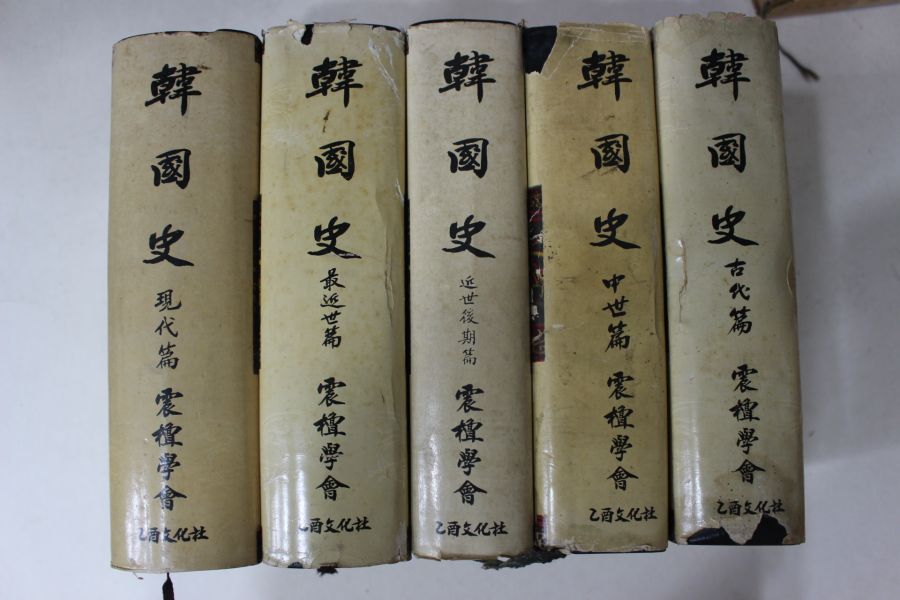 韓國史 現代篇 震檀學會
乙酉文化社
韓國史 最近世篇 震檀學會
韓國史 近世後期篇 震檀學會
乙酉文化社
韓國史 中世篇 震檀學會
乙酉文化社
韓國史 古代篇 震檀學會
乙酉文化社